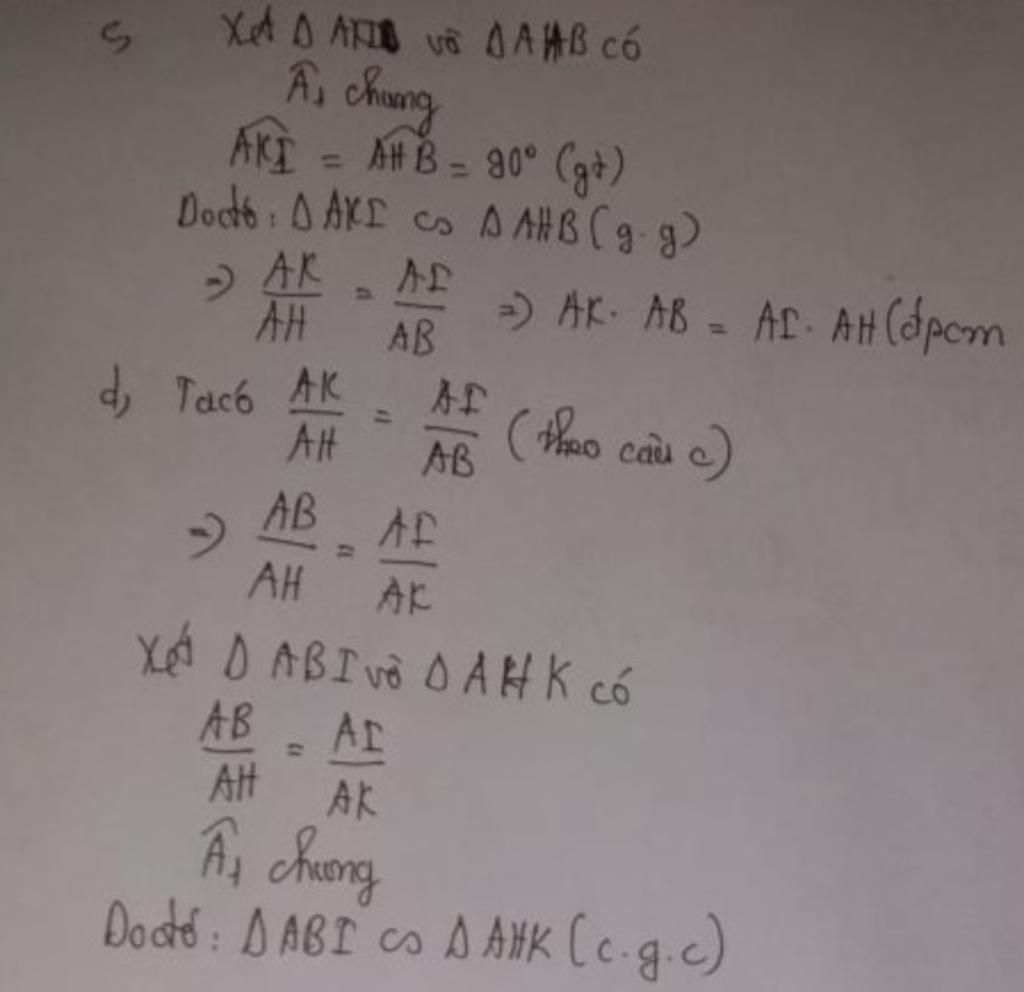 c, Xét Δ AKI và Δ AHB có
Â₁ chung
AKI = AHB = 90° (gt)
Do đó: Δ AKI ∽ Δ AHB (g.g)
=> AK/AH = AI/AB => AK. AB = AI. AH (đpcm
d, Ta có AK/AH = AI/AB (theo câu c)
=> AB/AH = AI/AK
Xét Δ ABI và Δ AHK có
AB/AH = AI/AK
Â₁ chung
Do đó: Δ ABI ∽ Δ AHK (c.g.c)